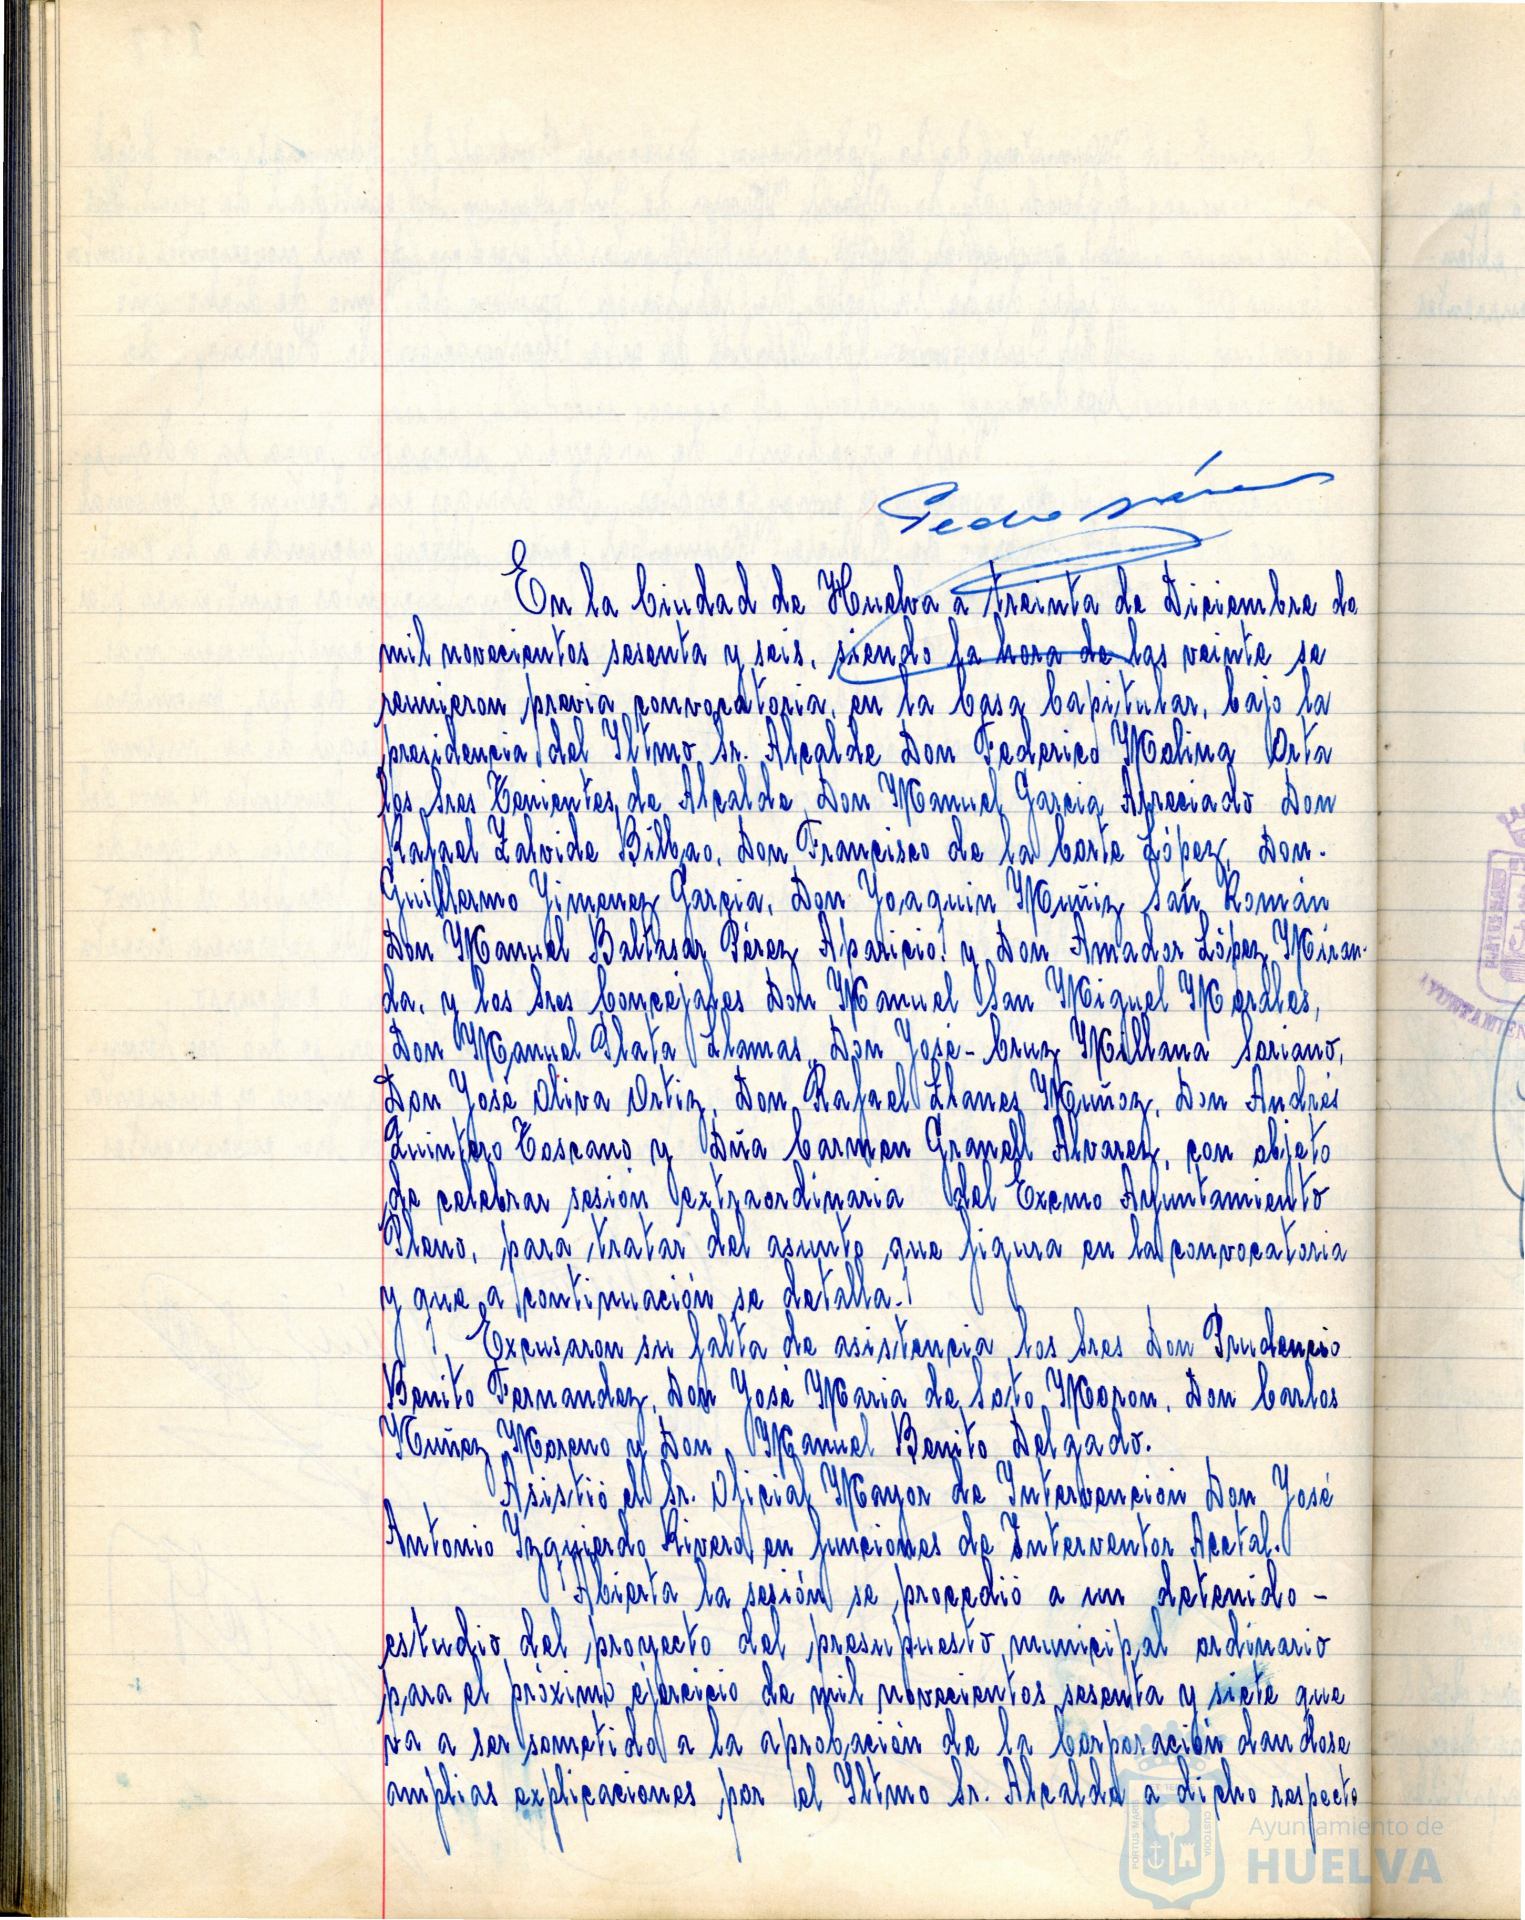 En la Ciudad de Huelva a treinta de Diciembre de
mil novecientos sesenta y seis, siendo la hora de las veinte se
reunieron previa convocatoria, en la Casa Capitular, bajo la
presidencia del Yltmo Sr. Alcalde Don Federico Molina Orta
los Sres Tenientes de Alcalde, Don Manuel Garcia Apreciado Don
Rafael Zalvide Bilbao, Don Francisco de la Corte López, Don.
Guillermo Jimenez Garcia, Don Joaquin Muñiz San Román
Don Manuel Baltasar Pérez Aparicio y Don Amador López Miran-
da, y los Sres Concejales Don Manuel San Miguel Morales,
Don Manuel Plata Llamas, Don José-Cruz Millana Soriano,
Don José Oliva Ortiz, Don Rafael Llanes Muñoz, Don Andrés
Quintero Toscano y Dña Carmen Granell Alvarez, con objeto
de celebrar sesión extraordinaria del Excmo Ayuntamiento
Pleno, para tratar del asunto que figura en la convocatoria
y que a continuación se detalla.
Excusaron su falta de asistencia los Sres Don Prudencio
Benito Fernandez, Don José Maria de Soto Morón, Don Carlos
Muñez Moreno y Don Manuel Benito Delgado.
Asistió el Sr. Oficial Mayor de Intervención Don José
Antonio Izquierdo Rivera en funciones de Interventor Acctal.
Abierta la sesión se procedió a un detenido -
estudio del proyecto del presupuesto municipal ordinario
para el próximo ejercicio de mil novecientos sesenta y siete que
va a ser sometido a la aprobación de la Corporación dandose
amplias explicaciones por el Yltmo Sr. Alcalde a dicho respecto
PORTUS MARIS
CUSTODIA
Ayuntamiento de
HUELVA